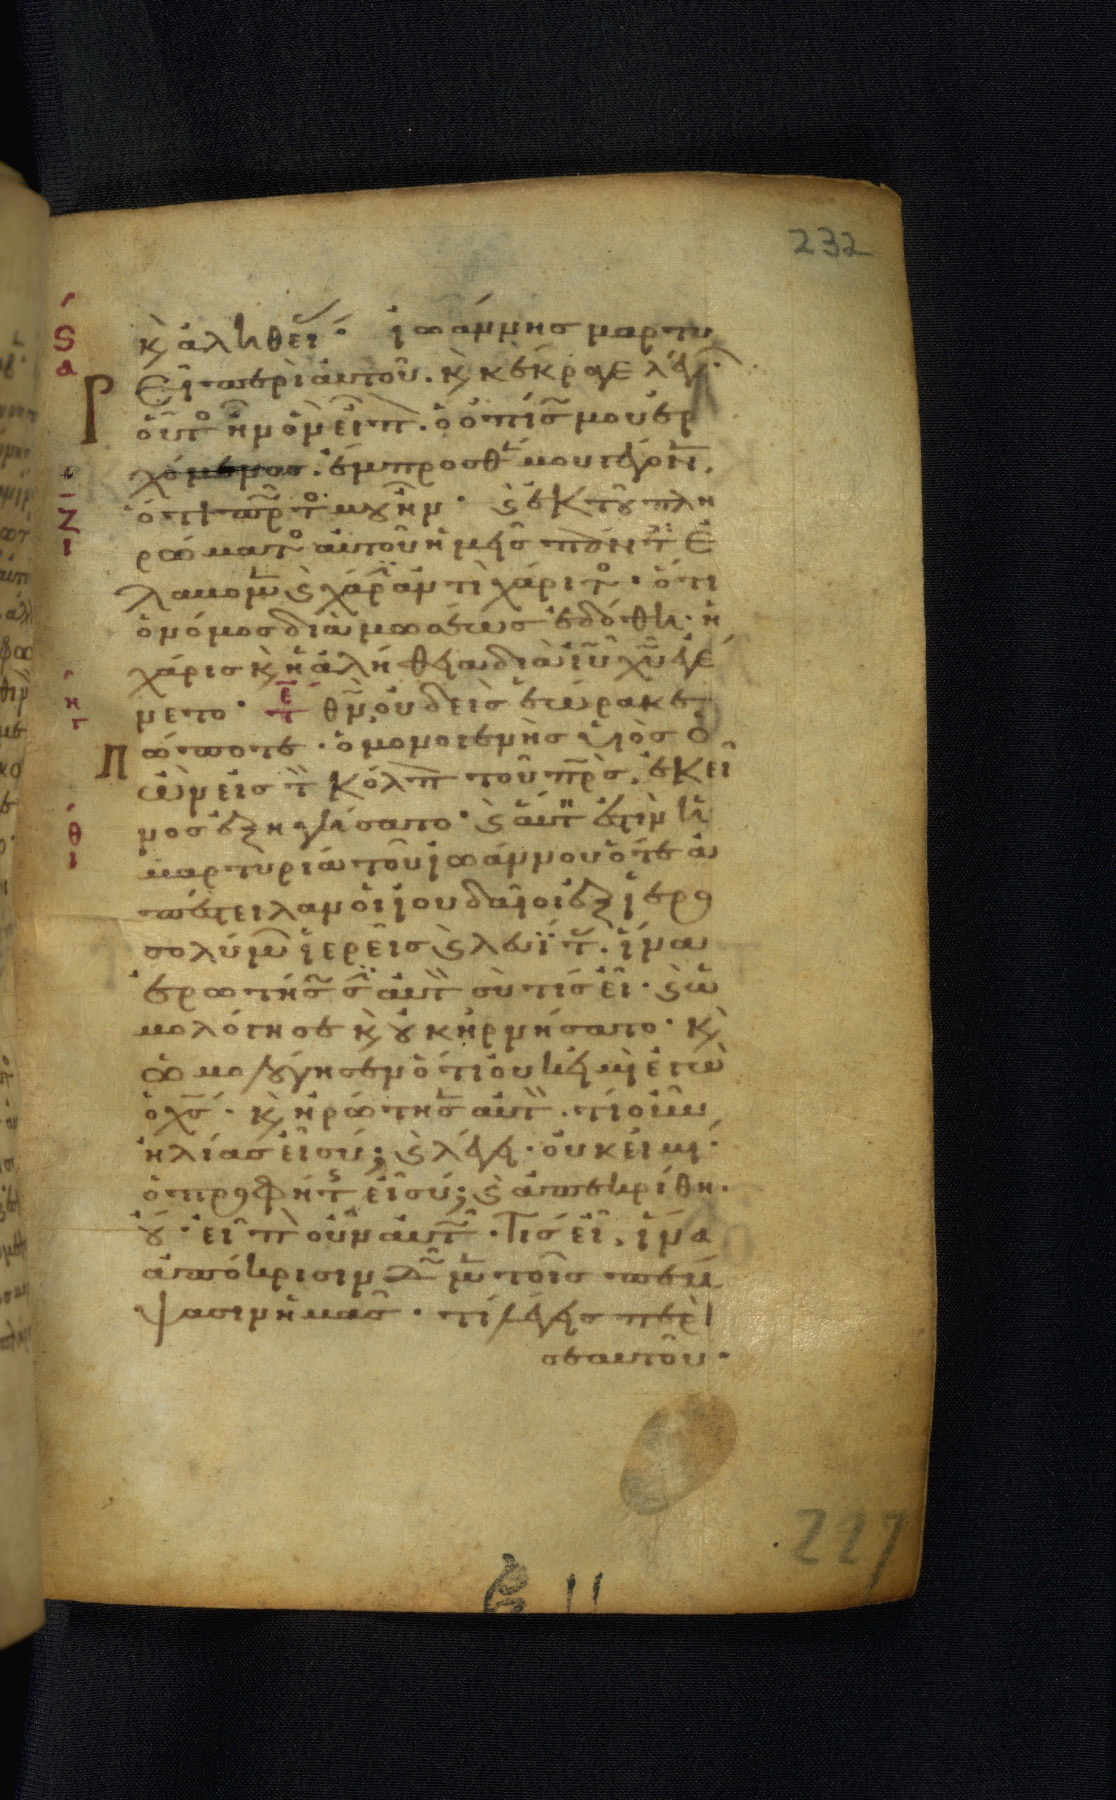 232
κ̀ ἀληθεί· ἰωάννης μαρτυ
ρεῖ περὶ αὐτοῦ. κ̀ κέκραγε λέγ·
οὗτ ἦν ὃν εἶπ. ὁ ὀπίσ μου ἐρ
χόμενος. ἔμπροσθ μου γέγον,
ὅτι πρῶτ μου ἦν· κ̀ ἐκ τοῦ πλη
ρώματ αὐτοῦ ἡμεῖς πάντ ἐ
λάβομ κ̀ χάρ ἀντὶ χάριτ· ὅτι
ὁ νόμος διὰ μωσέως ἐδόθη· ἡ
χάρις κ̀ ἡ ἀλήθεια διὰ ἰῦ χῦ ἐγέ
νετο· θν οὐδεὶς ἑώρακε
πώποτε· ὁ μονογενὴς υἱὸς ὁ
ὢν εἰς τ κόλπ τοῦ πρς, ἐκεῖ
νος ἐξηγήσατο· κ̀ αὕτ ἐστὶν ἡ
μαρτυρία τοῦ ἰωάννου ὅτε ἀ
πέστειλαν οἱ ἰουδαῖοι ἐξ ἱερο
σολύμ ἱερεῖς κ̀ λευΐτ. ἵνα
ἐρωτήσ αὐτ σὺ τίς εἶ· κ̀ ὡ
μολόγησε κ̀ οὐκ ἠρνήσατο· κ̀
ὡμολόγησεν ὅτι οὐκ εἰμὶ ἐγὼ
ὁ χς· κ̀ ἠρώτησ αὐτ. τί οὖν
ἠλίας εἶ σύ; κ̀ λέγει· οὐκ εἰμί·
ὁ προφήτ εἶ σύ; κ̀ ἀπεκρίθη.
οὔ· εἶπ οὖν αὐτ· τίς εἶ, ἵνα
ἀπόκρισιν δῶμ τοῖς πέμ
ψασιν ἡμᾶς· τί λέγεις περὶ
σεαυτοῦ·
227